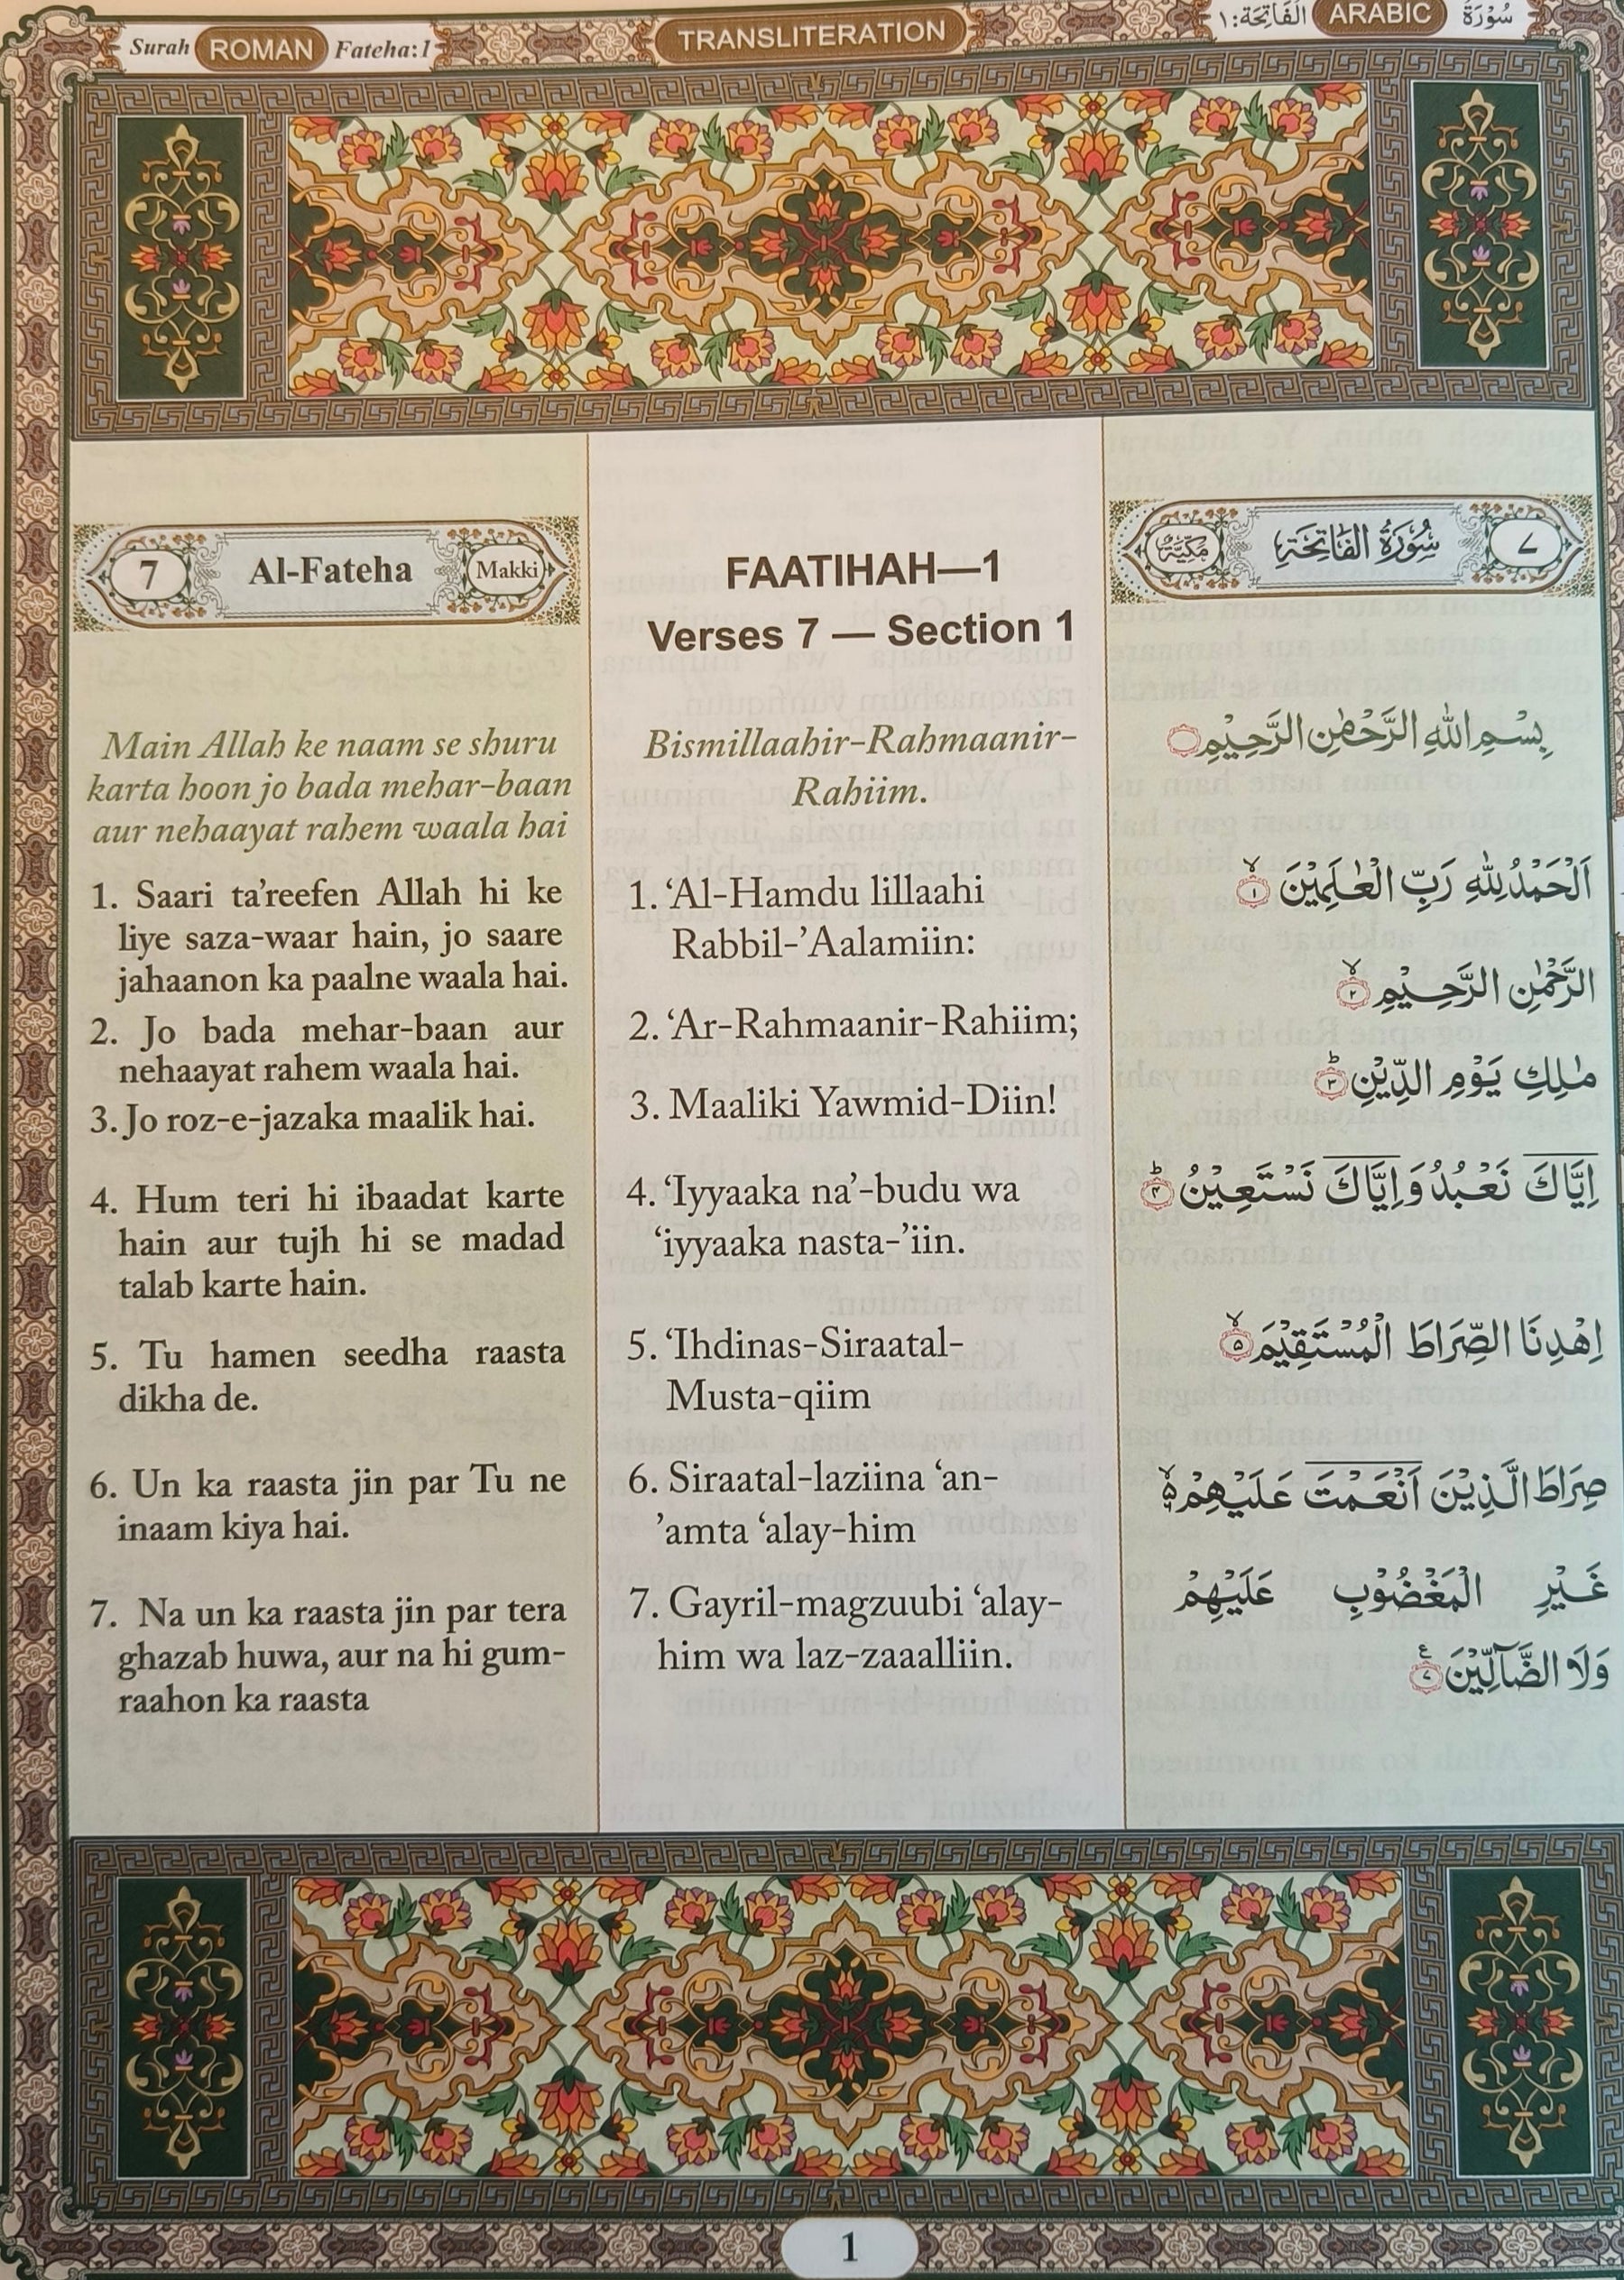 Surah ROMAN Fateha:1
TRANSLITERATION
سُوْرَةُ ARABIC الْفَاتِحَة:١
7 Al-Fateha Makki
Main Allah ke naam se shuru
karta hoon jo bada mehar-baan
aur nehaayat rahem waala hai
1. Saari ta’reefen Allah hi ke
liye saza-waar hain, jo saare
jahaanon ka paalne waala hai.
2. Jo bada mehar-baan aur
nehaayat rahem waala hai.
3. Jo roz-e-jazaka maalik hai.
4. Hum teri hi ibaadat karte
hain aur tujh hi se madad
talab karte hain.
5. Tu hamen seedha raasta
dikha de.
6. Un ka raasta jin par Tu ne
inaam kiya hai.
7. Na un ka raasta jin par tera
ghazab huwa, aur na hi gum-
raahon ka raasta
FAATIHAH—1
Verses 7 — Section 1
Bismillaahir-Rahmaanir-
Rahiim.
1. ‘Al-Hamdu lillaahi
Rabbil-’Aalamiin:
2. ‘Ar-Rahmaanir-Rahiim;
3. Maaliki Yawmid-Diin!
4. ‘Iyyaaka na’-budu wa
‘iyyaaka nasta-’iin.
5. ‘Ihdinas-Siraatal-
Musta-qiim
6. Siraatal-laziina ‘an-
’amta ‘alay-him
7. Gayril-magzuubi ‘alay-
him wa laz-zaaalliin.
٧ سُوْرَةُ الفَاتِحَةِ مَكِّيَّةٌ
بِسْمِ اللّٰهِ الرَّحْمٰنِ الرَّحِيْمِ
اَلْحَمْدُ لِلّٰهِ رَبِّ الْعٰلَمِيْنَ ۙ ١
الرَّحْمٰنِ الرَّحِيْمِ ۙ ٢
مٰلِكِ يَوْمِ الدِّيْنِ ؕ ٣
اِيَّاكَ نَعْبُدُ وَ اِيَّاكَ نَسْتَعِيْنُ ؕ ٤
اِهْدِنَا الصِّرَاطَ الْمُسْتَقِيْمَ ۙ ٥
صِرَاطَ الَّذِيْنَ اَنْعَمْتَ عَلَيْهِمْ ۙ۬
غَيْرِ الْمَغْضُوْبِ عَلَيْهِمْ
وَلَا الضَّآلِّيْنَ ٧
1